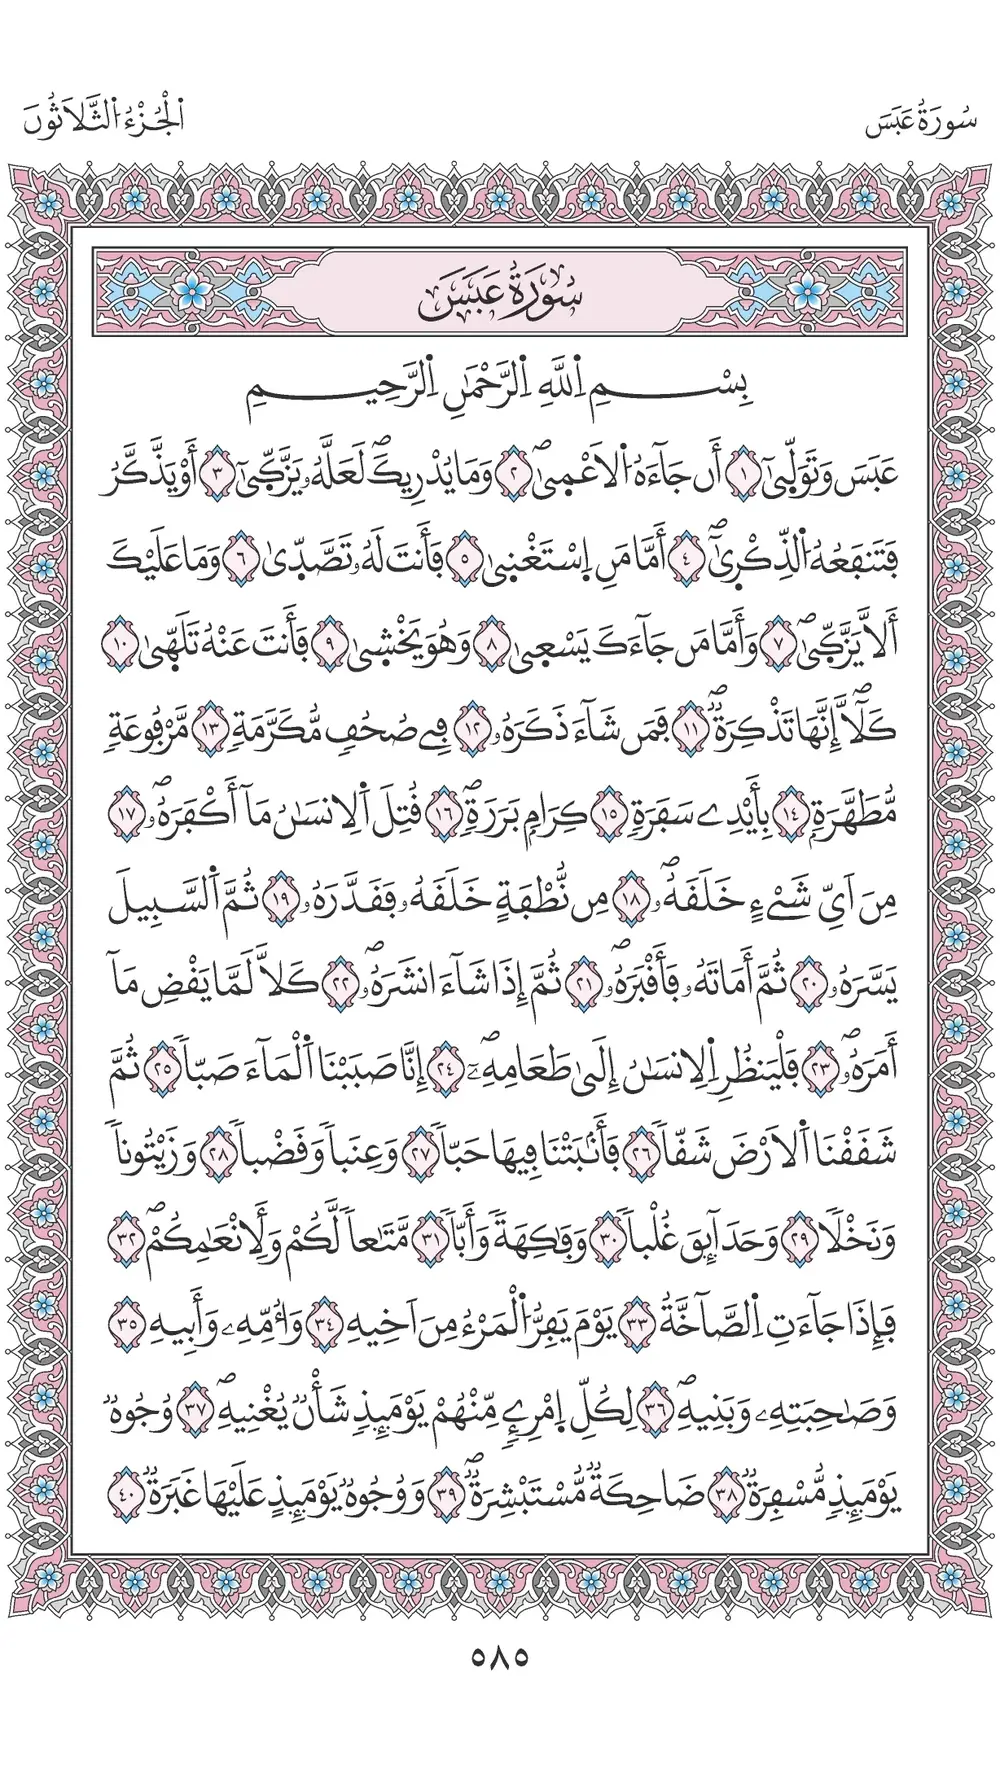 سُورَةُ عَبَسَ
اَلْجُزْءُ اُلثَّلَاثُونَ
سُورَةُ عَبَسَ
بِسْمِ اِللَّهِ اِلرَّحْمَٰنِ اِلرَّحِيمِ
عَبَسَ وَتَوَلّ۪ىٰٓ ١ أَن جَآءَهُ اُلَاعْم۪ىٰۖ ٢ وَمَا يُدْرِيكَۖ لَعَلَّهُۥ يَزَّكّ۪ىٰٓ ٣ أَوْ يَذَّكَّرُ
فَتَنفَعُهُ اُلذِّكْر۪ىٰٓۖ ٤ أَمَّا مَنِ اِسْتَغْن۪ىٰ ٥ فَأَنتَ لَهُۥ تَصَّدّ۪ىٰ ٦ وَمَا عَلَيْكَ
أَلَّا يَزَّكّ۪ىٰۖ ٧ وَأَمَّا مَن جَآءَكَ يَسْع۪ىٰ ٨ وَهُوَ يَخْش۪ىٰ ٩ فَأَنتَ عَنْهُ تَلَهّ۪ىٰ ١٠
كَلَّآۖ إِنَّهَا تَذْكِرَةٞۖ ١١ فَمَن شَآءَ ذَكَرَهُۥ ١٢ فِے صُحُفٖ مُّكَرَّمَةٖ ١٣ مَّرْفُوعَةٖ
مُّطَهَّرَةِۢ ١٤ بِأَيْدِے سَفَرَةٖ ١٥ كِرَامِۢ بَرَرَةٖۖ ١٦ قُتِلَ اَلِانسَٰنُ مَآ أَكْفَرَهُۥۖ ١٧
مِنَ اَيِّ شَےْءٍ خَلَقَهُۥۖ ١٨ مِن نُّطْفَةٍ خَلَقَهُۥ فَقَدَّرَهُۥ ١٩ ثُمَّ اَلسَّبِيلَ
يَسَّرَهُۥ ٢٠ ثُمَّ أَمَاتَهُۥ فَأَقْبَرَهُۥۖ ٢١ ثُمَّ إِذَا شَآءَ انشَرَهُۥۖ ٢٢ كَلَّا لَمَّا يَقْضِ مَآ
أَمَرَهُۥۖ ٢٣ فَلْيَنظُرِ اِلِانسَٰنُ إِلَىٰ طَعَامِهِۦٓۖ ٢٤ إِنَّا صَبَبْنَا اَلْمَآءَ صَبّاٗ ٢٥ ثُمَّ
شَقَقْنَا اَلَارْضَ شَقّاٗ ٢٦ فَأَنۢبَتْنَا فِيهَا حَبّاٗ ٢٧ وَعِنَباٗ وَقَضْباٗ ٢٨ وَزَيْتُوناٗ
وَنَخْلاٗ ٢٩ وَحَدَآئِقَ غُلْباٗ ٣٠ وَفَٰكِهَةٗ وَأَبّاٗ ٣١ مَّتَٰعاٗ لَّكُمْ وَلِأَنْعَٰمِكُمْۖ ٣٢
فَإِذَا جَآءَتِ اِلصَّآخَّةُ ٣٣ يَوْمَ يَفِرُّ اُلْمَرْءُ مِنَ اَخِيهِ ٣٤ وَأُمِّهِۦ وَأَبِيهِ ٣٥
وَصَٰحِبَتِهِۦ وَبَنِيهِۖ ٣٦ لِكُلِّ اِمْرِےٕٖ مِّنْهُمْ يَوْمَئِذٖ شَأْنٞ يُغْنِيهِۖ ٣٧ وُجُوهٞ
يَوْمَئِذٖ مُّسْفِرَةٞ ٣٨ ضَاحِكَةٞ مُّسْتَبْشِرَةٞۖ ٣٩ وَوُجُوهٞ يَوْمَئِذٍ عَلَيْهَا غَبَرَةٞ ٤٠
٥٨٥